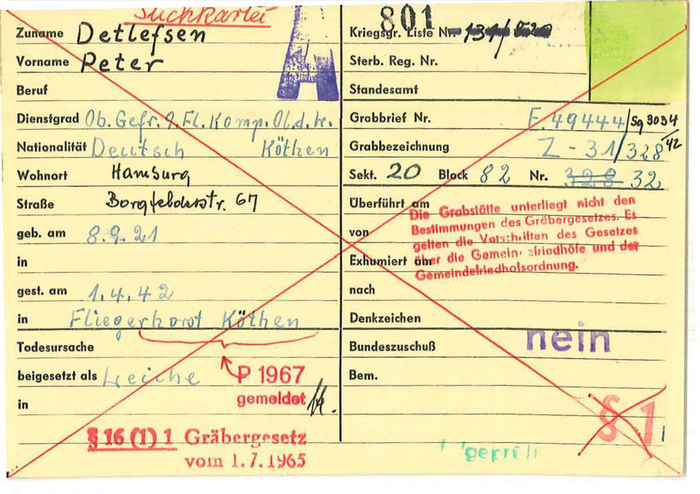 Suchkartei
Zuname Detlefsen
Vorname Peter
Beruf
Dienstgrad Ob. Gefr. 9. Fl. Komp. Ob. d. L.
Nationalität Deutsch Köthen
Wohnort Hamburg
Straße Borgfelderstr. 67
geb. am 8.9.21
in
gest. am 1.4.42
in Fliegerhorst Köthen
Todesursache
beigesetzt als Leiche
P 1967
gemeldet
in
§ 16 (1) 1 Gräbergesetz
vom 1.7.1965
A
801
Kriegsgr. Liste Nr. 131/
Sterb. Reg. Nr.
Standesamt
Grabbrief Nr. F. 49444/Sg 3034/42
Grabbezeichnung Z - 31/328
Sekt. 20 Block 82 Nr. 328 32
Überführt am
von
Die Grabstätte unterliegt nicht den
Bestimmungen des Gräbergesetzes. Es
gelten die Vorschriften des Gesetzes
über die Gemeindefriedhöfe und der
Gemeindefriedhofsordnung.
Exhumiert am
nach
Denkzeichen
Bundeszuschuß nein
Bem.
§ 1
geprüft